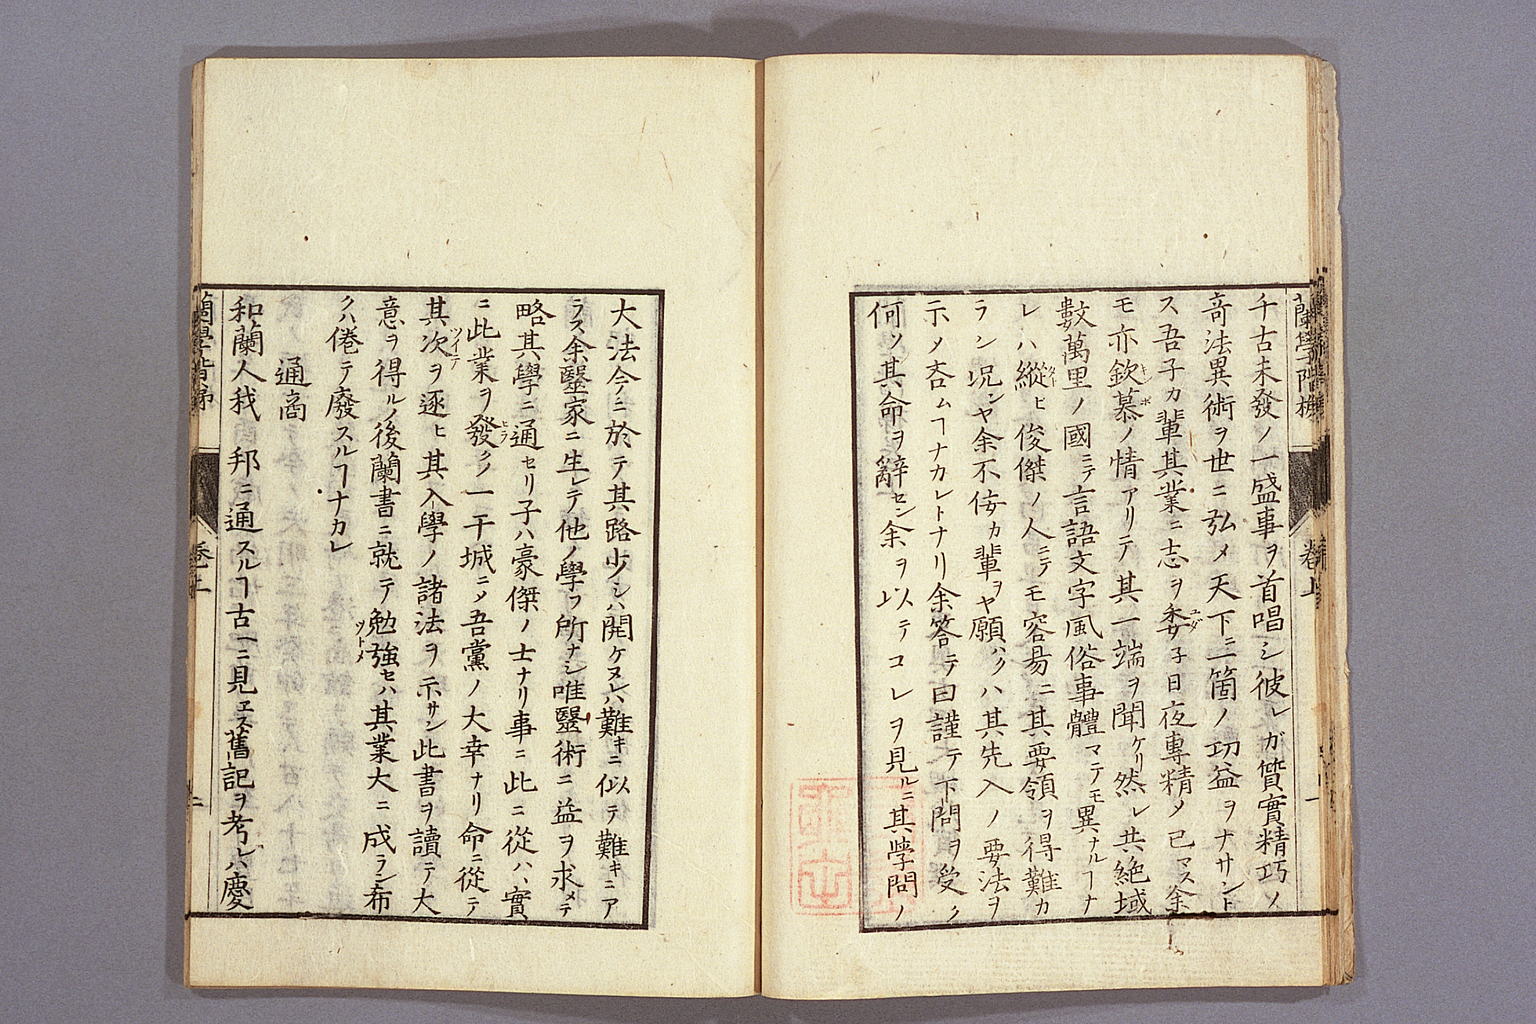 千古未發ノ一盛事ヲ首唱シ彼レガ質實精巧ノ
奇法異術ヲ世ニ弘メ天下ニ一箇ノ功益ヲナサント
ス吾子カ輩其業ニ志ヲ委子日夜專精メ已マス余
モ亦欽慕ノ情アリテ其一端ヲ聞ケリ然レ𪜈絶域
數萬里ノ國ニテ言語文字風俗事體マテモ異ナルヿナ
レハ縦ヒ俊傑ノ人ニテモ容易ニ其要領ヲ得難カ
ラン况ンヤ余不佞カ輩ヲヤ願ハクハ其先入ノ要法ヲ
示メ吝ムヿナカレトナリ余答テ曰謹テ下問ヲ受ク
何ソ其命ヲ辭セン余ヲ以テコレヲ見ルニ其學問ノ
大法今ニ於テ其路少シハ開ケヌレハ難キニ似テ難キニア
ラス余醫家ニ生レテ他ノ學フ所ナシ唯醫術ニ益ヲ求メテ
略其學ニ通セリ子ハ豪傑ノ士ナリ事ニ此ニ從ハヽ實
ニ此業ヲ發クノ一干城ニメ吾黨ノ大幸ナリ命ニ從テ
其次ヲ逐ヒ其入學ノ諸法ヲ示サン此書ヲ讀テ大
意ヲ得ルノ後蘭書ニ就テ勉強セハ其業大ニ成ラン布
クハ倦テ廢スルヿナカレ
通商
和蘭人我邦ニ通スルヿ古一ニ見エス舊記ヲ考レハ慶